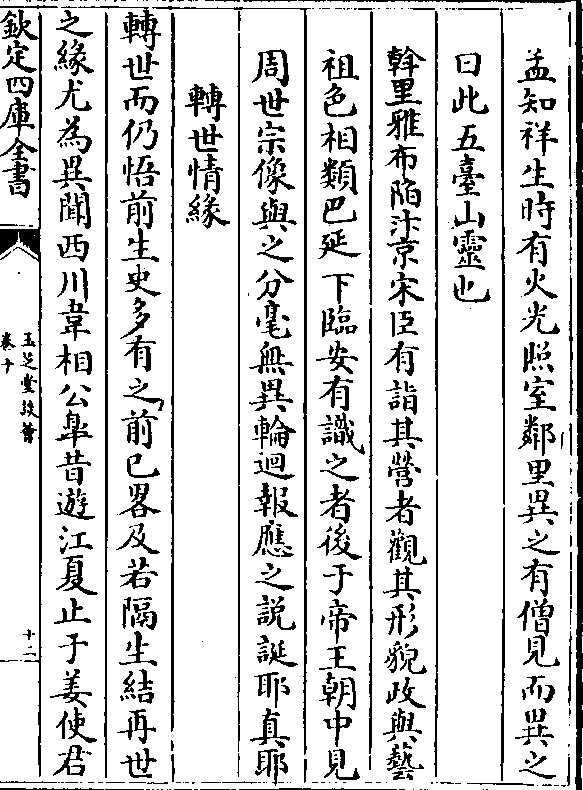 孟知祥生時有火光照室鄰里異之有僧見而異之
曰此五臺山靈也
斡里雅布陷汴京宋臣有詣其營者觀其形貌政與藝
祖色相類巴延下臨安有識之者後于帝王朝中見
周世宗像與之分毫無異輪迴報應之説誕耶真耶
轉世情緣
轉世而仍悟前生史多有之前已畧及若隔生結再世
之緣尤為異聞西川韋相公臯昔遊江夏止于姜使君
欽定四庫全書
玉芝堂談薈
卷十
十二